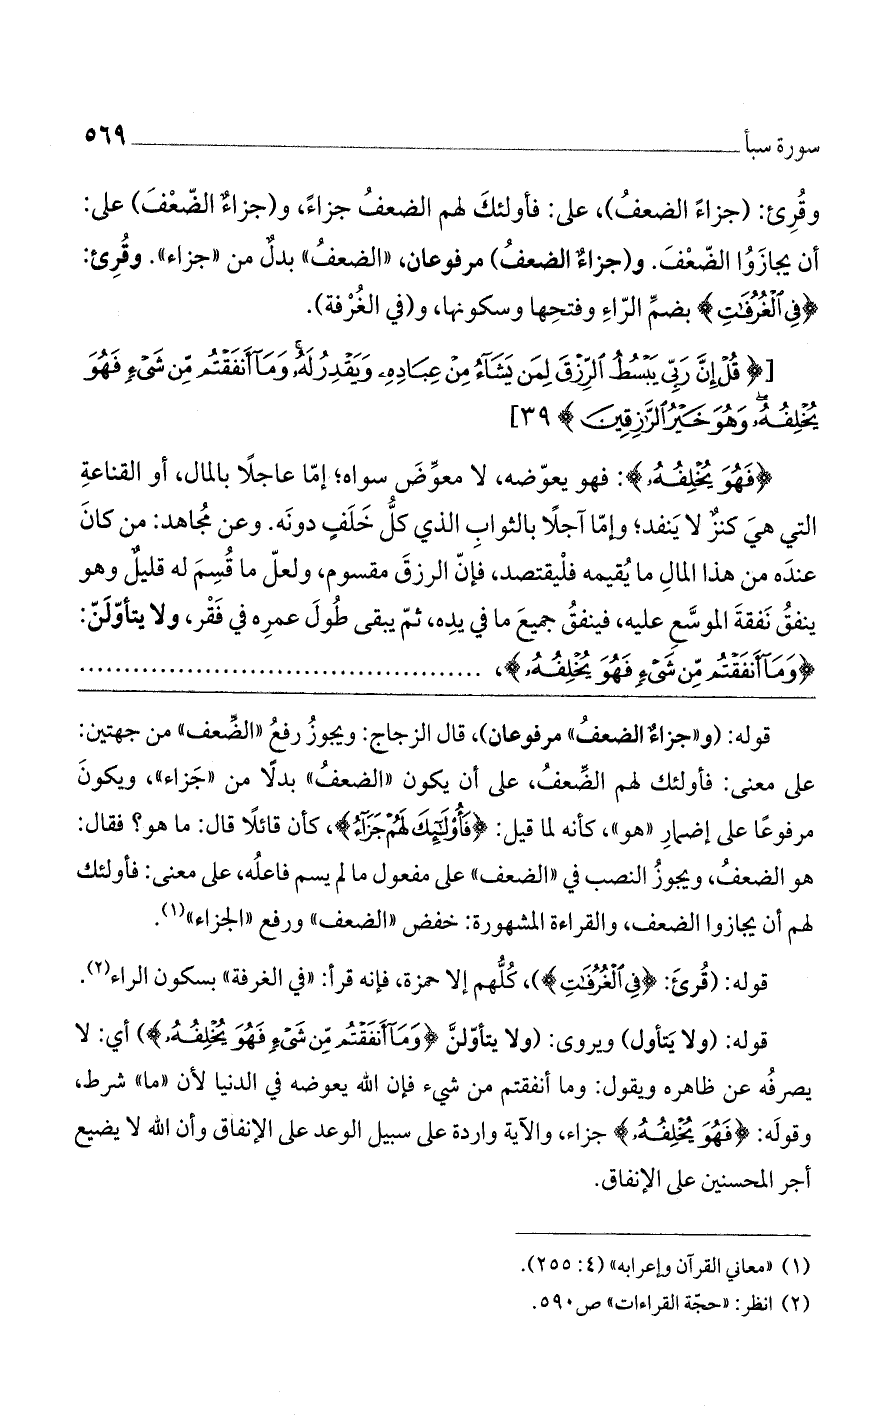 سورة سبأ ٥٦٩
وقُرِئ: (جزاءً الضعفُ)، على: فأولئكَ لهم الضعفُ جزاءً، و(جزاءٌ الضّعْفَ) على:
أن يجازَوُا الضّعْفَ. و(جزاءٌ الضعفُ) مرفوعان، «الضعفُ» بدلٌ من «جزاء». وقُرِئ:
﴿فِي ٱلْغُرُفَٰتِ﴾ بضمِّ الرّاءِ وفتحِها وسكونها، و(في الغُرْفة).
[﴿قُلْ إِنَّ رَبِّي يَبْسُطُ ٱلرِّزْقَ لِمَن يَشَآءُ مِنْ عِبَادِهِۦ وَيَقْدِرُ لَهُۥۚ وَمَآ أَنفَقْتُم مِّن شَيْءٍ فَهُوَ
يُخْلِفُهُۥۖ وَهُوَ خَيْرُ ٱلرَّٰزِقِينَ﴾ ٣٩]
﴿فَهُوَ يُخْلِفُهُۥ﴾: فهو يعوّضه، لا معوِّضَ سواه؛ إمّا عاجلًا بالمال، أو القناعةِ
التي هيَ كنزٌ لا يَنفد؛ وإمّا آجلًا بالثوابِ الذي كلُّ خَلَفٍ دونَه. وعن مُجاهد: من كانَ
عندَه من هذا المالِ ما يُقيمه فلْيقتصد، فإنّ الرزقَ مقسوم، ولعلّ ما قُسِمَ له قليلٌ وهو
ينفقُ نَفقةَ الموسَّعِ عليه، فينفقُ جميعَ ما في يدِه، ثمّ يبقى طُولَ عمرِه في فَقْر، ولا يتأوّلَنّ:
﴿وَمَآ أَنفَقْتُم مِّن شَيْءٍ فَهُوَ يُخْلِفُهُۥ﴾، ............................................
قوله: (و«جزاءٌ الضعفُ» مرفوعان)، قال الزجاج: ويجوزُ رفعُ «الضِّعف» من جهتين:
على معنى: فأولئك لهم الضِّعفُ، على أن يكون «الضعفُ» بدلًا من «جَزاء»، ويكونَ
مرفوعًا على إضمارِ «هو»، كأنه لما قيل: ﴿فَأُو۟لَٰٓئِكَ لَهُمْ جَزَآءُ﴾، كأن قائلًا قال: ما هو؟ فقال:
هو الضعفُ، ويجوزُ النصب في «الضعف» على مفعول ما لم يسم فاعلُه، على معنى: فأولئك
لهم أن يجازوا الضعف، والقراءة المشهورة: خفض «الضعف» ورفع «الجزاء»(١).
قوله: (قُرِئَ: ﴿فِي ٱلْغُرُفَٰتِ﴾)، كُلُّهم إلا حمزة، فإنه قرأ: «في الغرفة» بسكون الراء(٢).
قوله: (ولا يَتأول) ويروى: (ولا يتأوّلنَّ ﴿وَمَآ أَنفَقْتُم مِّن شَيْءٍ فَهُوَ يُخْلِفُهُۥ﴾) أي: لا
يصرفُه عن ظاهره ويقول: وما أنفقتم من شيء فإن الله يعوضه في الدنيا لأن «ما» شرط،
وقولَه: ﴿فَهُوَ يُخْلِفُهُۥ﴾ جزاء، والآية واردة على سبيل الوعد على الإنفاق وأن الله لا يضيع
أجر المحسنين على الإنفاق.
(١) «معاني القرآن وإعرابه» (٤: ٢٥٥).
(٢) انظر: «حجّة القراءات» ص٥٩٠.